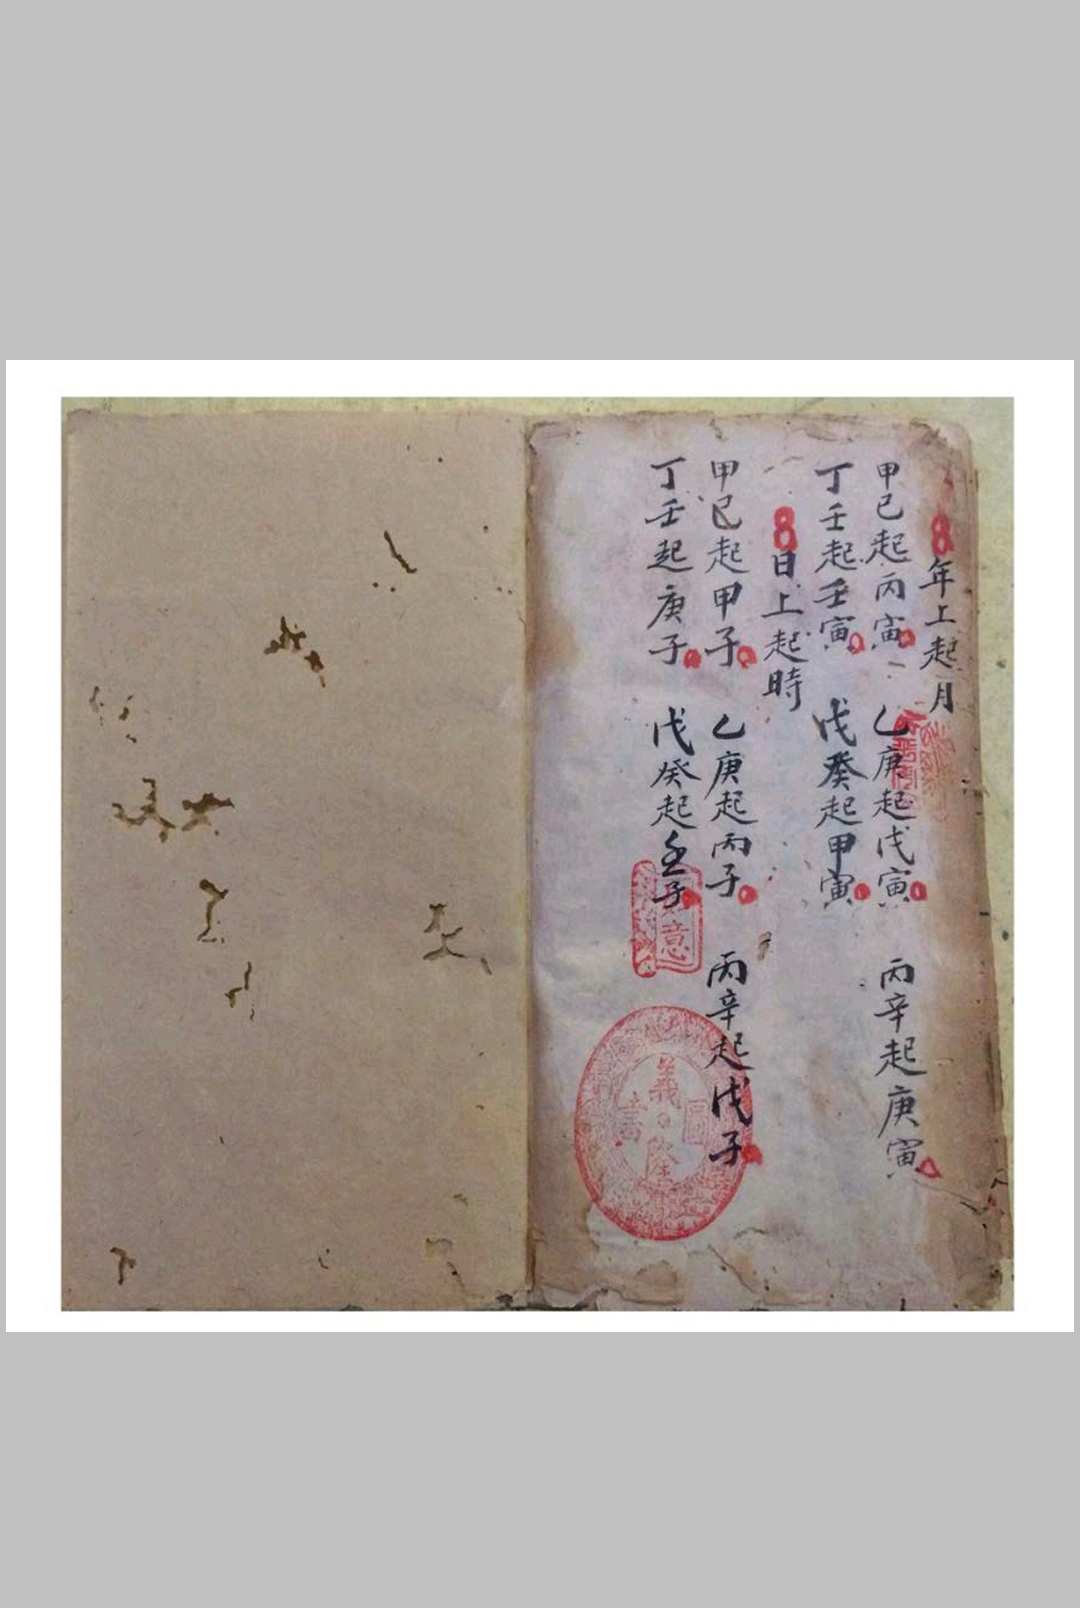 年上起月
甲己起丙寅 乙庚起戊寅 丙辛起庚寅
丁壬起壬寅 戊癸起甲寅
日上起時
甲己起甲子 乙庚起丙子 丙辛起戊子
丁壬起庚子 戊癸起壬子
意
義隆圖書